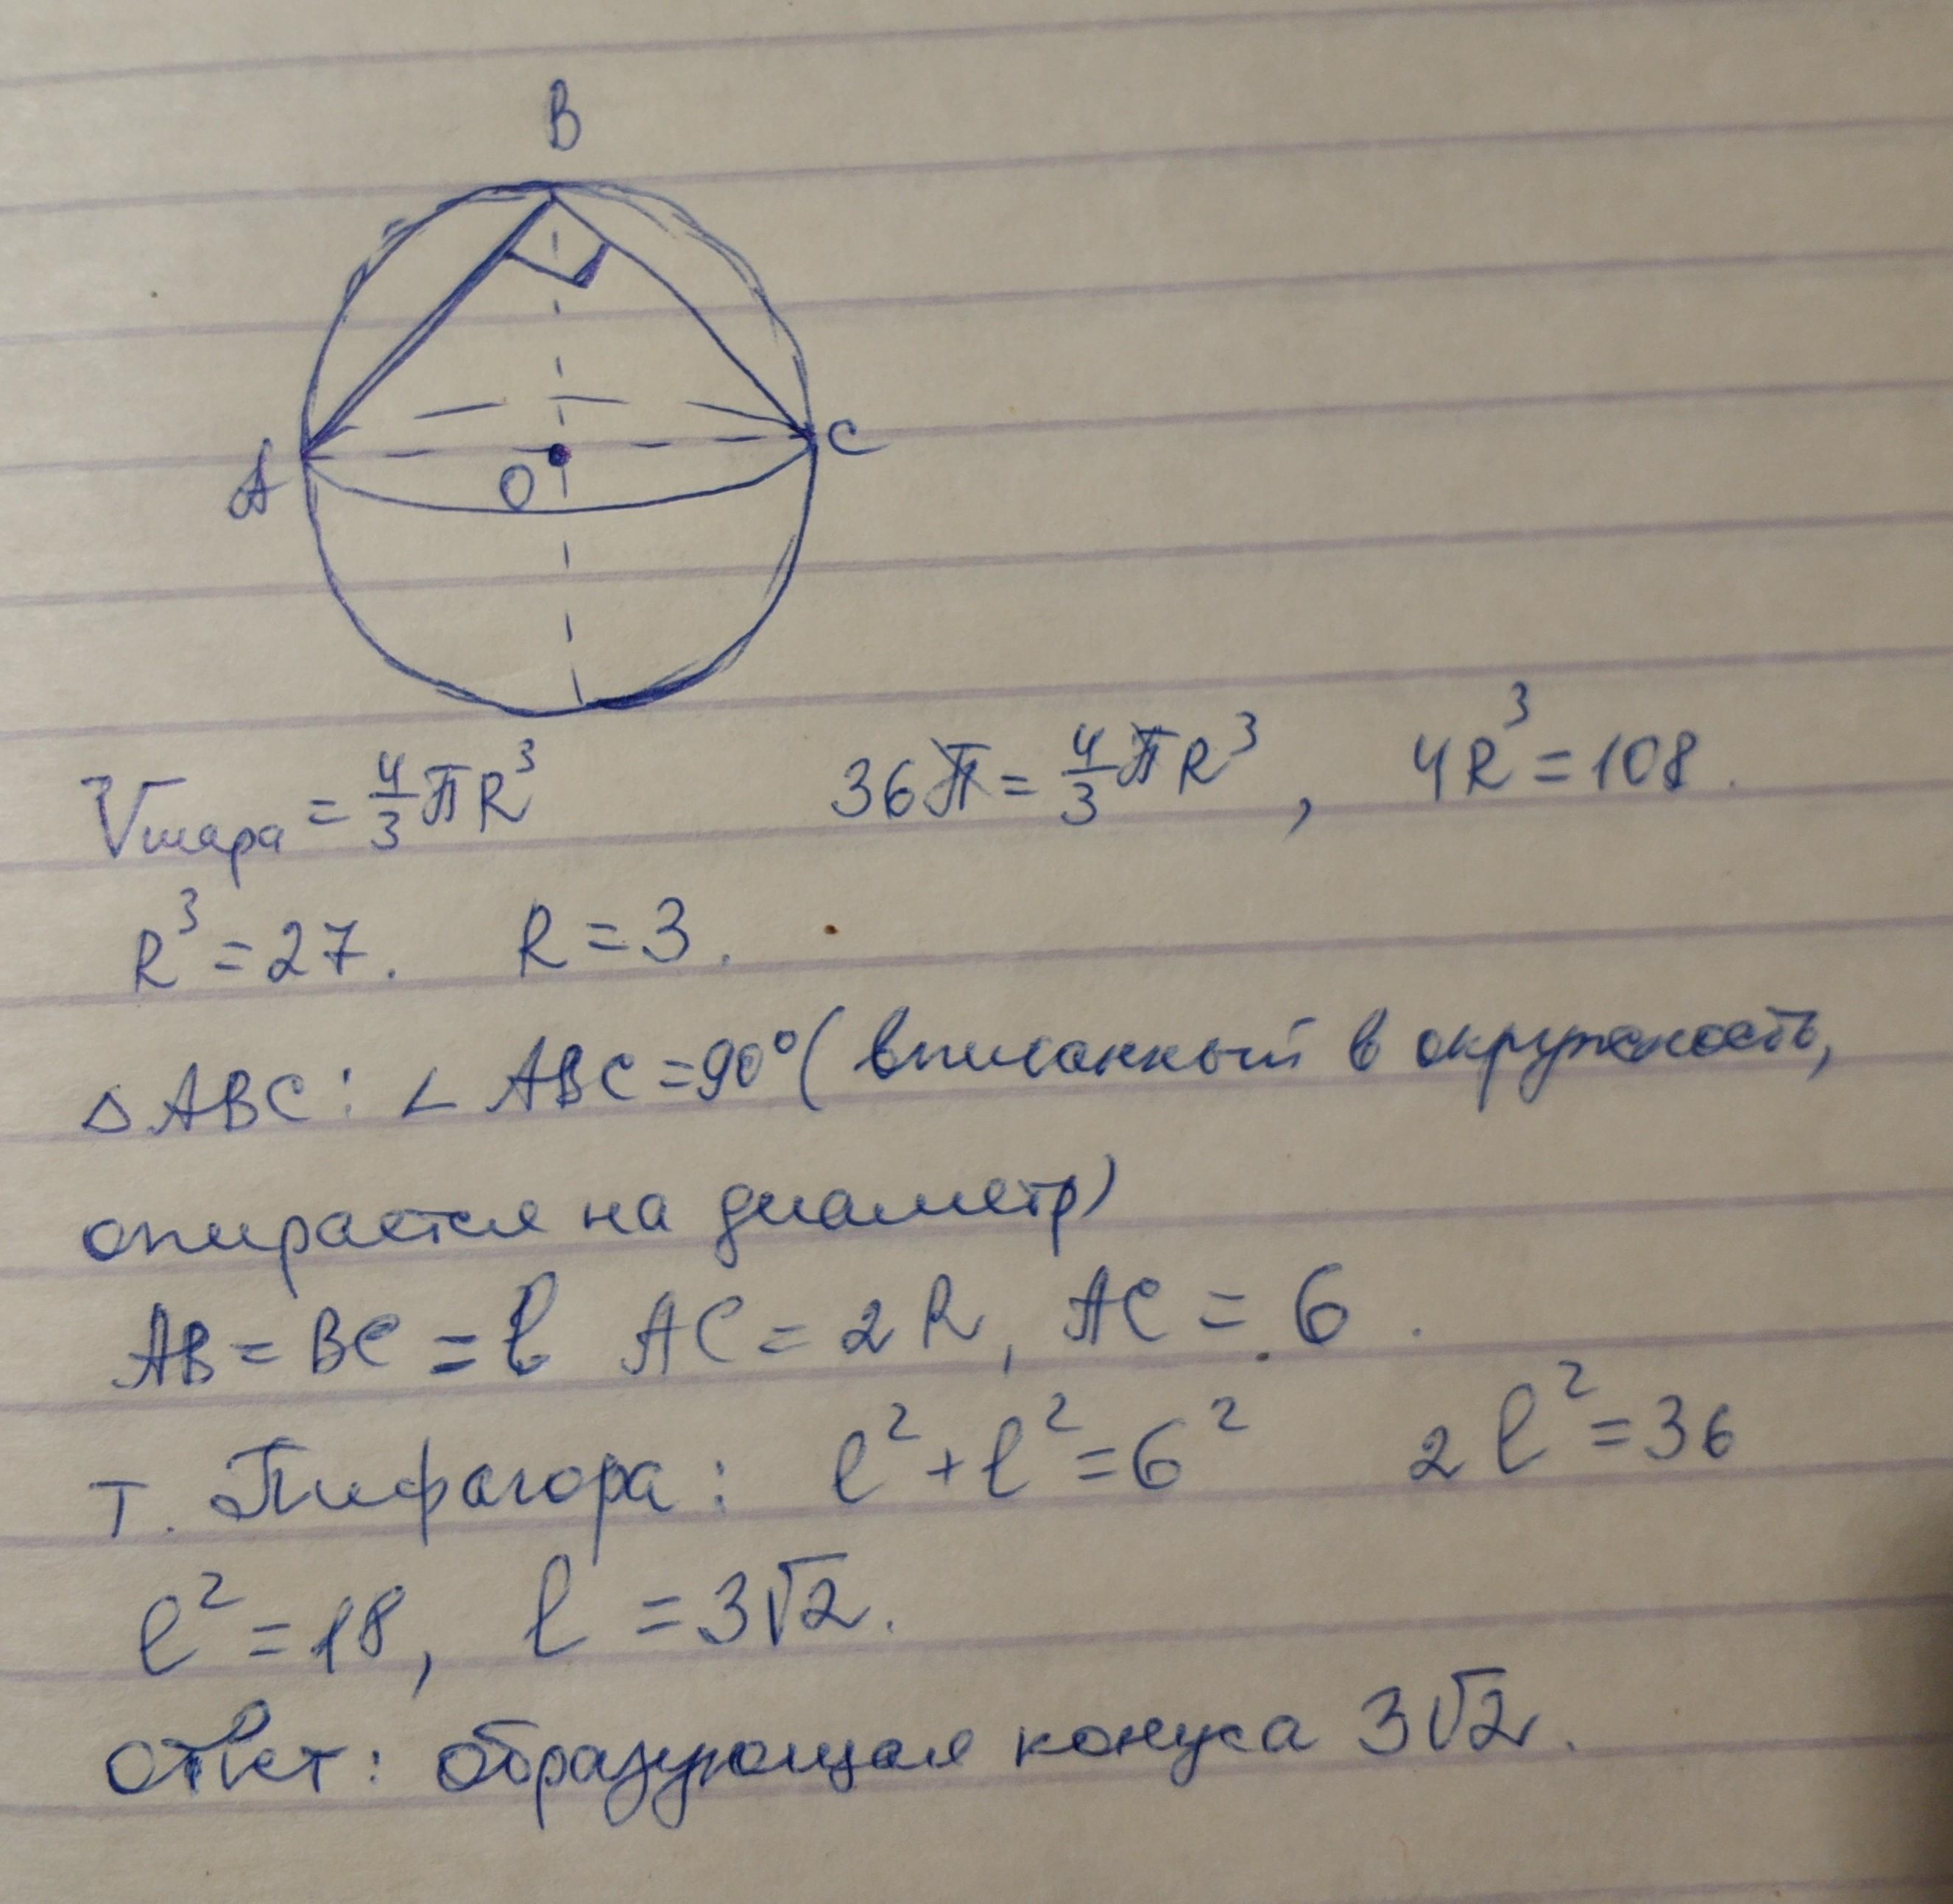 B
A
O
C
Vшара = 4/3 πR³ 36π = 4/3 πR³, 4R³ = 108.
R³ = 27. R = 3.
△ ABC: ∠ ABC = 90° (вписанный в окружность,
опирается на диаметр)
AB = BC = l AC = 2R, AC = 6.
Т. Пифагора: l² + l² = 6² 2l² = 36
l² = 18, l = 3√2.
Ответ: образующая конуса 3√2.